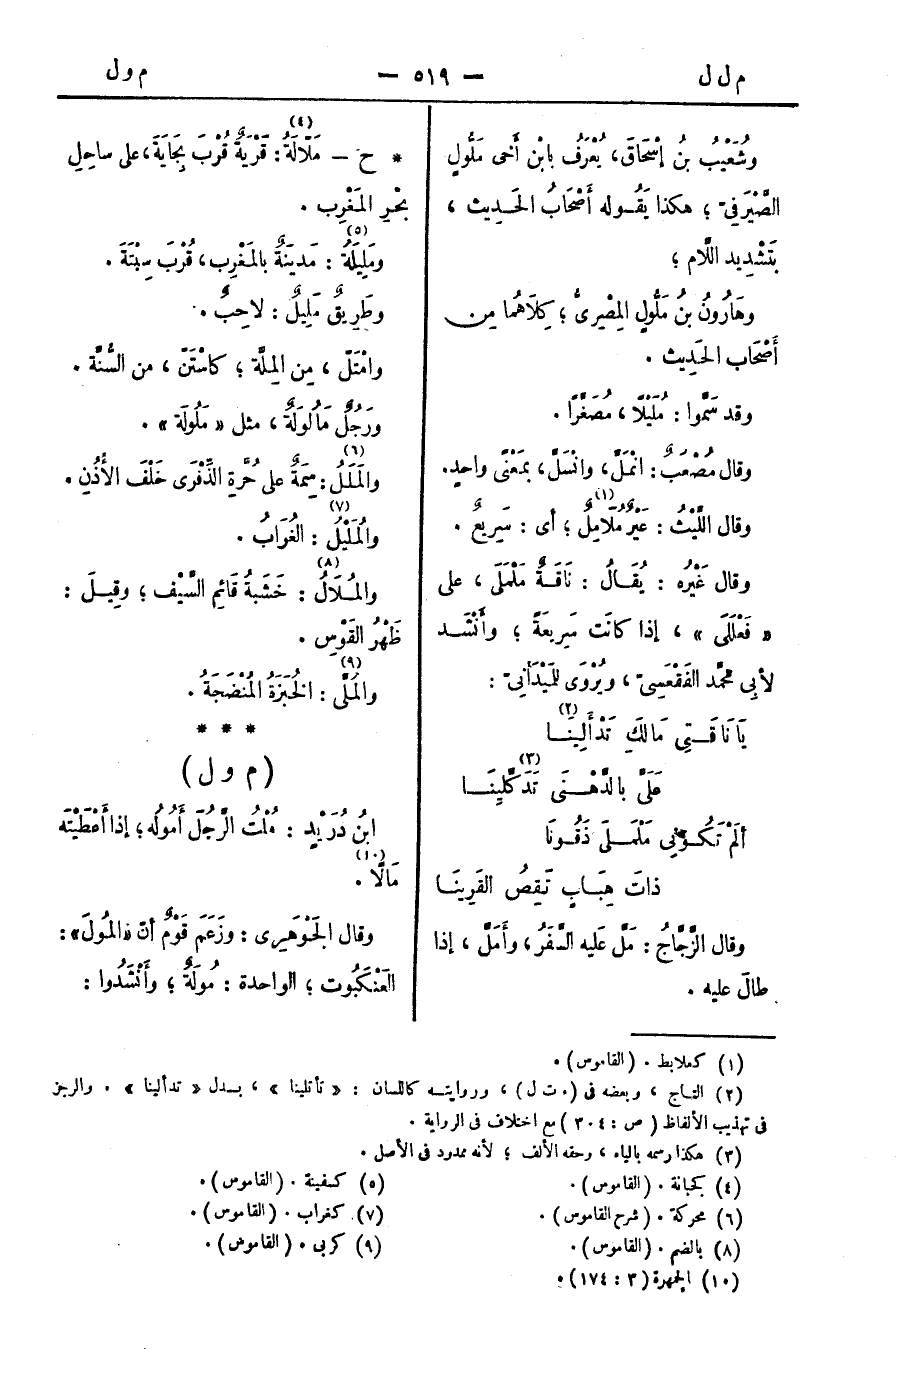 م ل ل — ٥١٩ — م و ل
وشُعَيْبُ بنُ إسْحَاقَ، يُعْرَفُ بابْنِ أَخى مَلُّولٍ
الصَّيْرَفِىّ ؛ هكذا يَقُوله أَصْحَابُ الحَدِيث ،
بتَشْدِيد اللَّام ؛
وهَارُونُ بنُ مَلُّولٍ المِصْرِىُّ ؛ كِلَاهُما مِن
أَصْحَاب الحَدِيث .
وقد سَمَّوا : مُلَيْلًا ، مُصَغَّرًا .
وقال مُصْعَبٌ : انْمَلَّ ، وانْسَلَّ ، بمَعْنًى واحِدٍ.
وقال اللَّيْثُ : عَيْرٌ مُلَامِلٌ(١) ؛ أى : سَرِيعٌ .
وقال غَيْرُه : يُقَالُ : نَاقَةٌ مَلْمَلَى ، على
« فَعْلَلَى » ، إذا كانَت سَرِيعَةً ؛ وأَنْشَد
لأبِى محمَّد الفَقْعَسِىّ ، ويُرْوَى للمَيْدَانِىّ :
يَا نَاقَتِى مَالَكِ تَدْأَلِينَا(٢)
عَلَىَّ بالدَّهْنَى تَدَكَّلِينَا(٣)
أَلَمْ تَكُونِى مَلْمَلَى ذَقُونَا
ذاتَ هِبَابٍ تَقِصُ القَرِينَا
وقال الزَّجَّاجُ : مَلَّ عليه السَّفَرُ ، وأَمَلَّ ، إذا
طالَ عليه .
* ح – مَلَّالَةُ(٤) : قَرْيَةٌ قُرْبَ بِجَايَةَ، على ساحِلِ
بحْرِ المَغْرِب .
ومَلِيلَةُ(٥) : مَدينَةٌ بالمَغْرِب، قُرْبَ سِبْتَةَ .
وطَرِيقٌ مَلِيلٌ : لاحِبٌ .
وامْتَلَّ ، مِن المِلَّة ؛ كاسْتَنَّ ، من السُّنَّة .
ورَجُلٌ مَالُولَةٌ ، مثل « مَلُولَة » .
والمَلَلُ(٦) : سِمَةٌ على حُرَّةِ الذِّفْرَى خَلْفَ الأُذُنِ .
والمُلَيْلُ(٧) : الغُرَابُ .
والمُلَالُ(٨) : خَشَبَةُ قَائِمِ السَّيْف ؛ وقِيلَ :
ظَهْرُ القَوْسِ .
والمُلَّى(٩) : الخُبْزَةُ المُنْضَجَةُ .
* * *
(م و ل)
ابنُ دُرَيْدٍ : مُلْتُ الرَّجُلَ أَمُولُه ؛ إذا أَعْطَيْتَه
مَالًا(١٠) .
وقال الجَوْهَرِى : وزَعَمَ قَوْمٌ أنّ «المُولَ» :
العَنْكَبُوت ؛ الواحدة : مُولَةٌ ؛ وأَنْشَدُوا :
(١) كملابط . (القاموس) .
(٢) التاج ، وبعضه فى (. ت ل) ، وروايته كاللسان : « تأتلينا » ، بدل « تدألينا » . والرجز
فى تهذيب الألفاظ (ص : ٣٠٤) مع اختلاف فى الرواية .
(٣) هكذا رسمه بالياء ، وحقه الألف ؛ لأنه ممدود فى الأصل .
(٤) كجبانة . (القاموس) . (٥) كسفينة . (القاموس) .
(٦) محركة . (شرح القاموس) . (٧) كغراب . (القاموس) .
(٨) بالضم . (القاموس) . (٩) كربى . (القاموس) .
(١٠) الجمهرة (٣ : ١٧٤) .